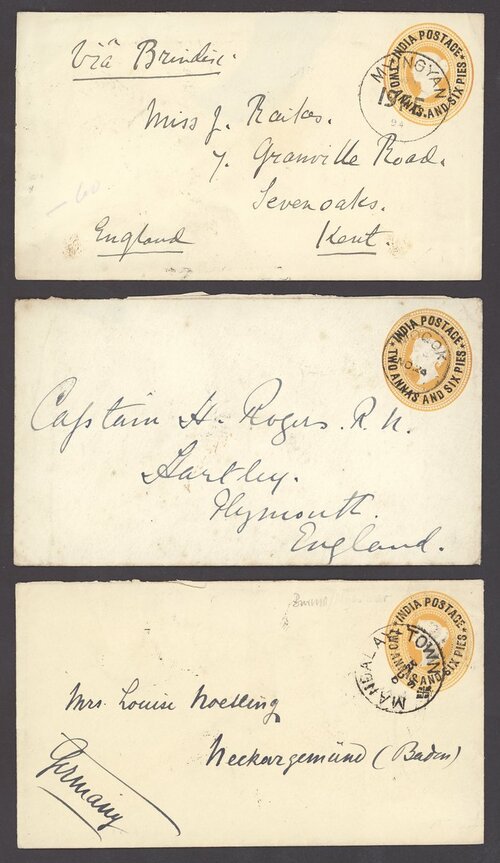 Via Brindisi.
INDIA POSTAGE
TWO ANNAS AND SIX PIES
MYINGYAN
94
Miss J. Raikes.
7. Granville Road.
Sevenoaks.
England
Kent.
INDIA POSTAGE
TWO ANNAS AND SIX PIES
MOGOK
NO 26
Captain H. Rogers. R.N.
Hartley.
Plymouth.
England.
INDIA POSTAGE
TWO ANNAS AND SIX PIES
MANDALAY TOWN
Mrs. Louise Noelling
Neckargemünd (Baden)
Germany